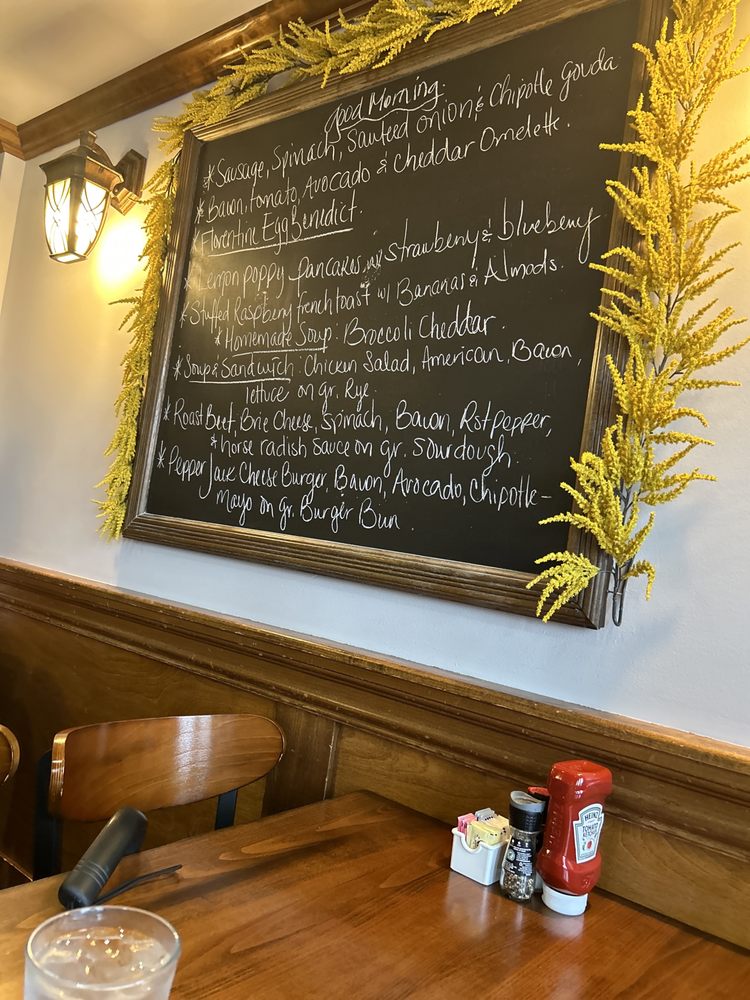 Good Morning
* Sausage, Spinach, Sauteed onion & Chipotle Gouda
* Bacon, tomato, Avocado & Cheddar Omelett.
* Florentine Egg Benedict.
* Lemon poppy pancakes w/ strawberry & blueberry
* Stuffed Raspberry french toast w/ Bananas & Almods.
* Homemade Soup: Broccoli Cheddar.
* Soup & Sandwich: Chicken Salad, American, Bacon,
lettuce on gr. Rye.
* Roast Beef, Brie Cheese, Spinach, Bacon, Rst pepper,
* horse radish sauce on gr. Sourdough.
* Pepper Jack Cheese Burger, Bacon, Avocado, Chipotle-
Mayo on gr. Burger Bun.
HEINZ
TOMATO
KETCHUP